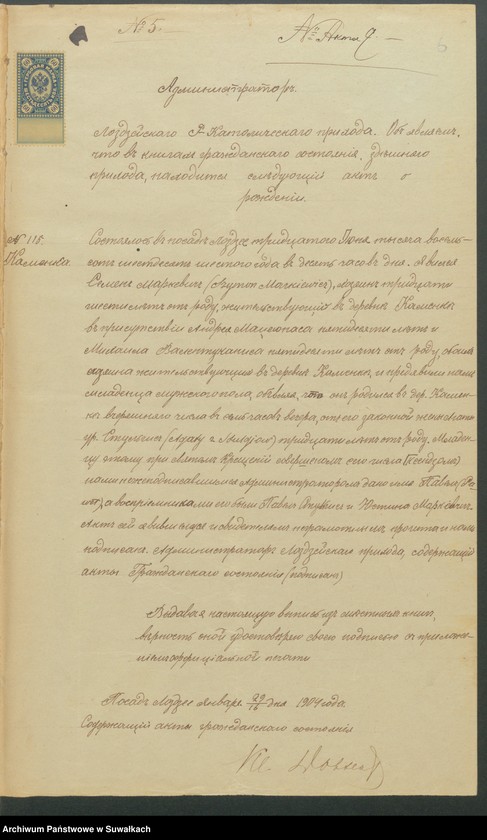 № 5.
№ Акта 7.
Администраторъ
Лоздзейскаго Р-Католическаго прихода. Объявляетъ,
что въ книгахъ гражданскаго состоянія, здѣшняго
прихода, находится слѣдующій актъ о
рожденіи.
№ 115.
Каменка
Состоялось въ посадѣ Лоздзее тридцатого Іюня тысяча восемь-
сотъ шестдесятъ шестого года въ десять часовъ дня. Явился
Семенъ Маркевич (Szymon Markiewicz), тридцати
шести лѣтъ отъ роду, жительствующій въ деревнѣ Каменкѣ
въ присутствіи Андрея пятидесяти лѣтъ и
Михаила пятидесяти лѣтъ отъ роду, обоихъ
жительствующихъ въ деревнѣ Каменкѣ, и предъявилъ намъ
младенца мужескаго пола, объявляя, что онъ родился въ дер. Камен-
кѣ числа въ часовъ вечера, отъ его законной жены
ур. тридцати лѣтъ отъ роду. Младен-
цу этому при святомъ крещеніи совершеномъ его числа
нижеподписавшимся Администраторомъ дано имя Павелъ
а воспріемниками его были Павелъ и Юстина Маркевичъ.
Актъ сей объявляющему и свидѣтелямъ неграмотнымъ прочитанъ нами
подписанъ. Администраторъ Лоздзейскаго прихода, содержащій
акты Гражданскаго состоянія (подписалъ)
Выдавая настоящую выпись изъ мѣстныхъ книгъ,
вѣрность оной удостовѣряю своею подписью съ приложе-
ніемъ оффиціальной печати
Посадъ Лоздзее Января 29/16 дня 1904 года
Содержащій акты гражданскаго состоянія
Archiwum Państwowe w Suwałkach